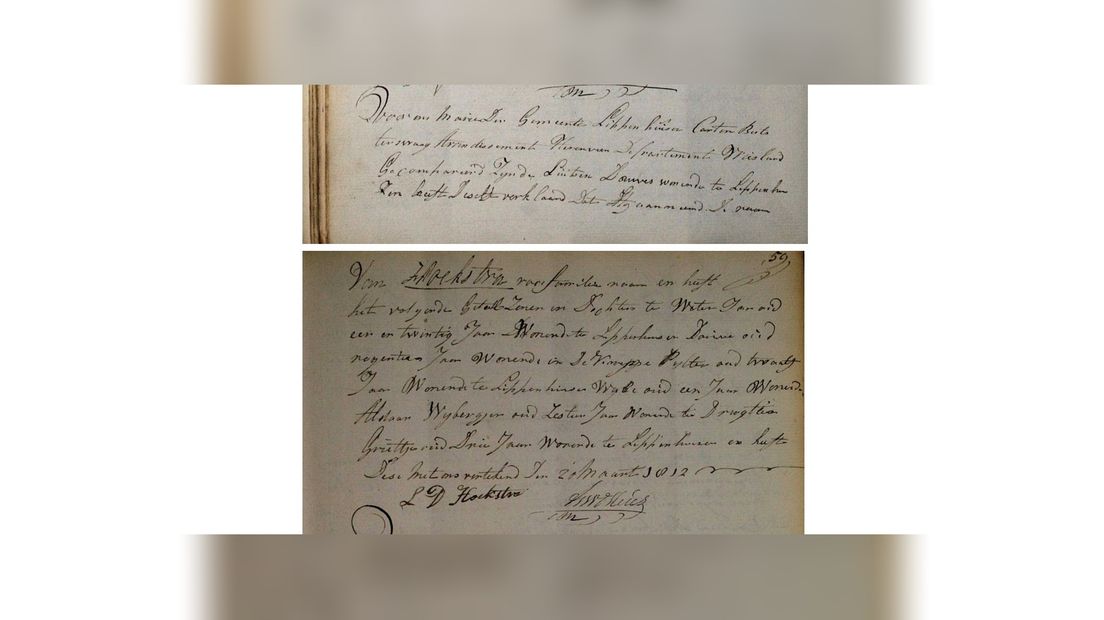 Voor ons Maire Der Gemeente Lippenhuisen Canton Beets
terswaag Arrondissement Heerenveen Departement Vriesland
Gecompareerd Zijnde Luitsen Douwes wonende te Lippenhui
Zen heeft Deselve verklaard Dat Hij aanneemd De naam
59
Van Hoekstra voor familie naam en heeft
het volgende Getall Zonen en Dochters te Weten Jan oud
een en twintig Jaar Wonende te Lippenhuisen Douwe oud
negentien Jaar Wonende in De Knieppe Pytter oud twaalf
Jaar Wonende te Lippenhuisen Wybe oud een Jaar Wonende
Aldaar Wybergjen oud Zestien Jaar Wonende te Dragten
Grietje oud Drie Jaar Wonende te Lippenhuisen en heeft
Dese Met ons vertekend Den 20 Maart 1812
L D Hoekstra